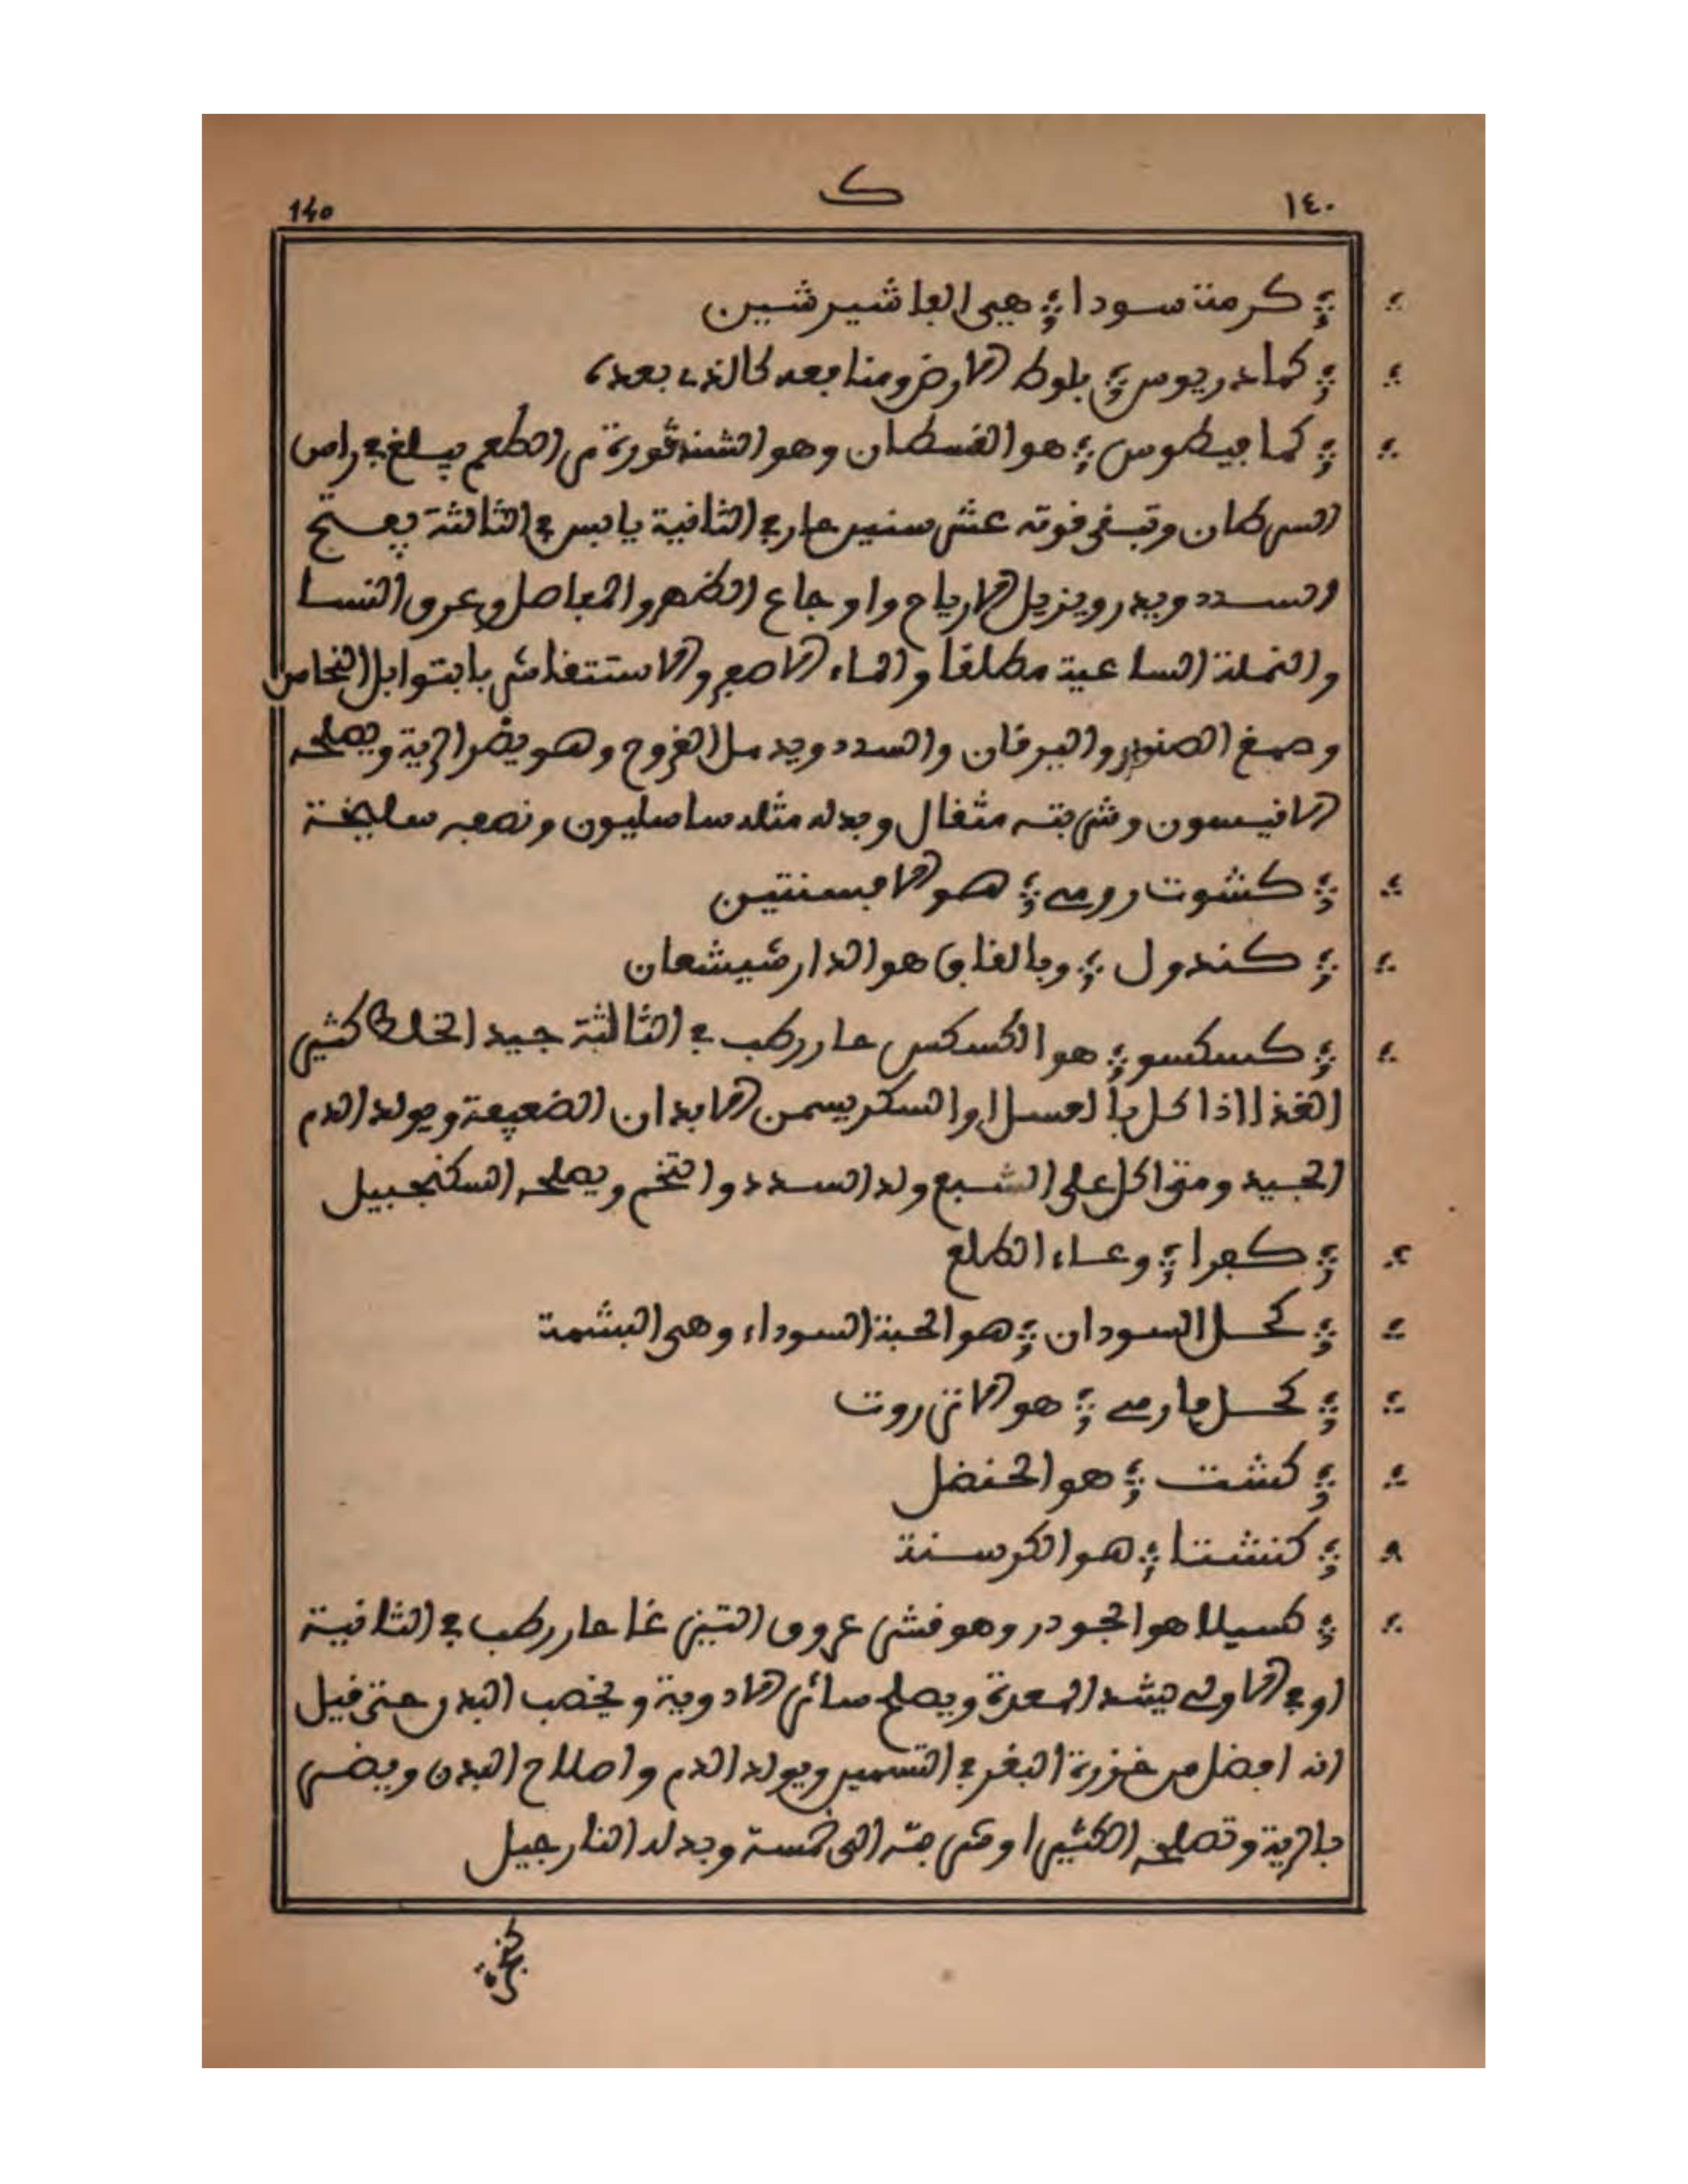 ١٤٠ ك 140
كرمة سودا هي الفاشيرشين
كماذريوس بلوط الارض ومنافعه كالذي بعده
كمافيطوس هو القسطان وهو الشندقورة من الطعم يبلغ في راس
السرطان وتبقى قوته عشر سنين حار في الثانية يابس في الثالثة يفتح
السدد ويدر ويزيل الارياح واوجاع الظهر والمفاصل وعرق النسا
والنملة الساعية مطلقا والماء الاصفر والاستسقا شربا بتوابل النحاس
وصمغ الصنوبر واليرقان والسدد ويدمل القروح وهو يضر الرية ويصلحه
الانيسون وشربته مثقال وبدله مثله ساساليون ونصفه سليخة
كشوت رومي هو الافسنتين
كندول وبالقاف هو الدارشيشعان
كسكسو هو الكسكس حار رطب في الثالثة جيد الخلط كثير
الغذا اذا اكل بالعسل او السكر يسمن الابدان الضعيفة ويولد الدم
الجيد ومتى اكل على الشبع ولد السدد والتخم ويصلحه السكنجبيل
كفرا وعاء الطلع
كحل السودان هو الحبة السوداء وهي البشمة
كحل فارسي هو الانزروت
كشت هو الحنضل
كنشتا هو الكرسنة
كسيلا هو الجودر وهو قشر عروق التيز غا حار رطب في الثانية
او في الاولى يشد المعدة ويصلح سائر الادوية ويخصب البدن حتى قيل
انه افضل من خرزة البقر في التسمين ويولد الدم واصلاح البدن ويضر
بالرية وتصلحه الكثيرا وشربته الى خمسة وبدله النارجيل